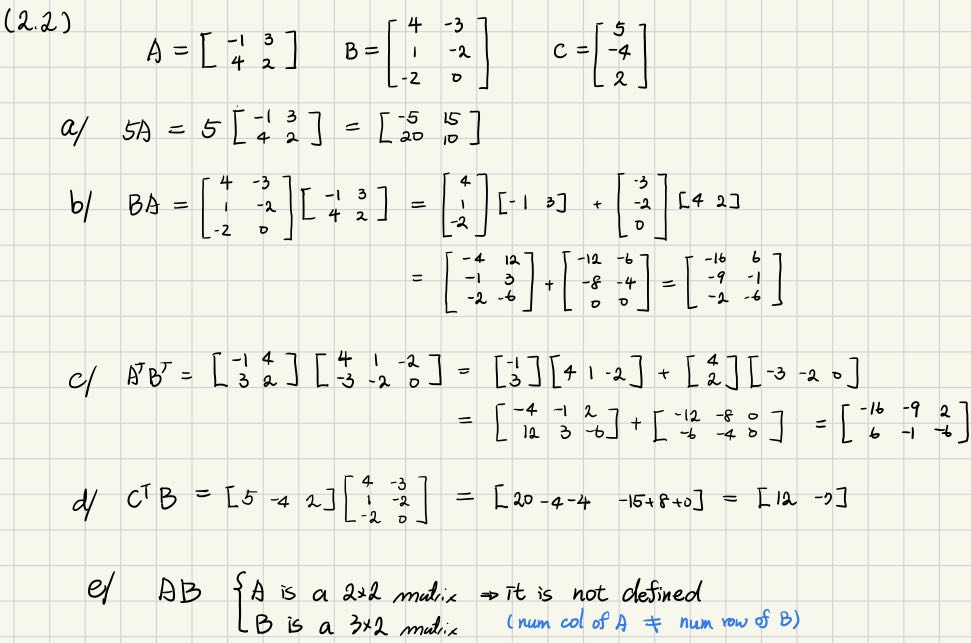 (2.2)
A = [-1 3; 4 2] B = [4 -3; 1 -2; -2 0] C = [5; -4; 2]
a/ 5A = 5 [-1 3; 4 2] = [-5 15; 20 10]
b/ BA = [4 -3; 1 -2; -2 0] [-1 3; 4 2] = [4; 1; -2] [-1 3] + [-3; -2; 0] [4 2]
= [-4 12; -1 3; -2 -6] + [-12 -6; -8 -4; 0 0] = [-16 6; -9 -1; -2 -6]
c/ AᵀBᵀ = [-1 4; 3 2] [4 1 -2; -3 -2 0] = [-1; 3] [4 1 -2] + [4; 2] [-3 -2 0]
= [-4 -1 2; 12 3 -6] + [-12 -8 0; -6 -4 0] = [-16 -9 2; 6 -1 -6]
d/ CᵀB = [5 -4 2] [4 -3; 1 -2; -2 0] = [20 -4 -4 -15+8+0] = [12 -7]
e/ AB { A is a 2×2 matrix ⇒ it is not defined
B is a 3×2 matrix (num col of A ≠ num row of B)